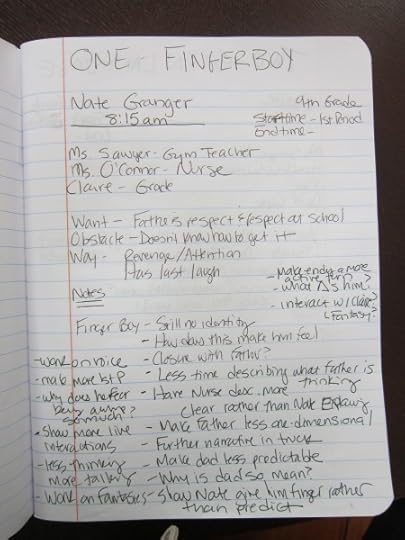 ONE FINGERBOY
Nate Granger
8:15am
9th Grade
Start time - 1st Period
End time -
Ms. Sawyer - Gym Teacher
Ms. O'Connor - Nurse
Claire - Grade
Want - Father's respect & respect at school
Obstacle - Doesn't know how to get it
Way - Revenge/Attention
Has last laugh
- Make ending a more
active turn?
- What Δ's him?
- interact w/ Claire?
Fantasy?
Notes
Finger Boy - Still no identity
- How does this make him feel
- Closure with father?
- Less time describing what father is
thinking
- Have Nurse desc. more
clear rather than Nate Explaining
- Make father less one-dimensional
- Further narrative in truck
- Make dad less predictable
- Why is dad so mean?
- Show Nate give him finger rather
than predict
- Work on voice
- make more 1st P
- Why does he fear
being
so much?
- Show more live
interactions
- less thinking
more talking
- Work on Fantasies